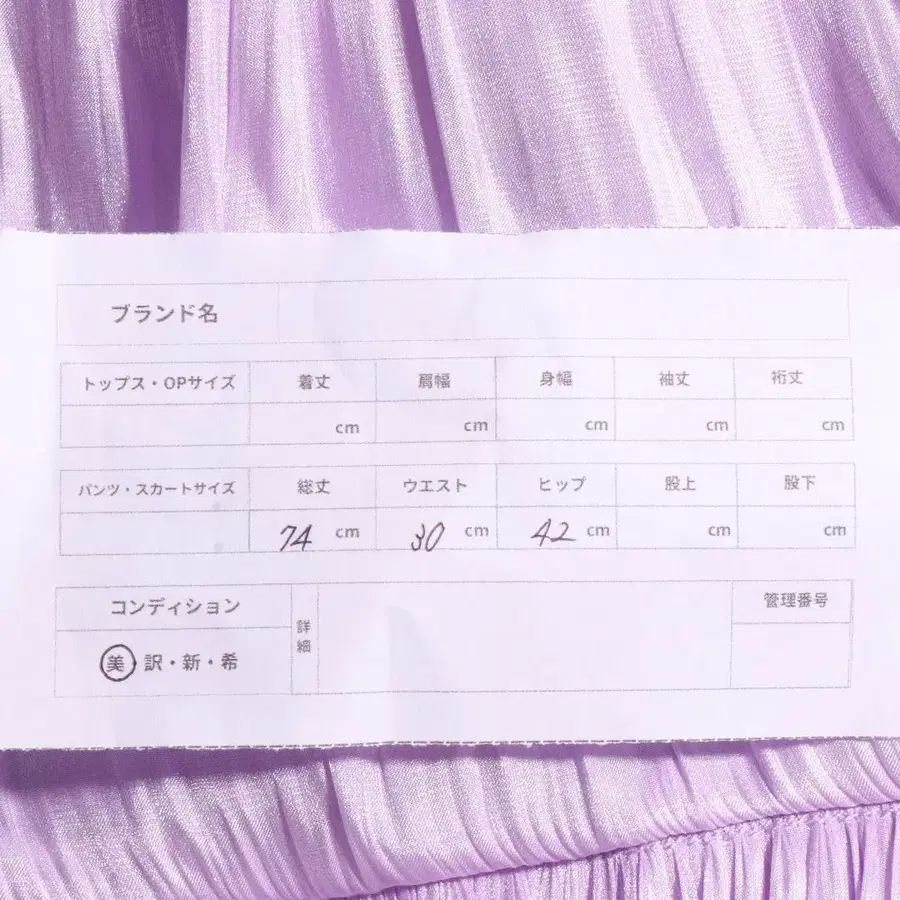 ブランド名
トップス・OPサイズ 着丈 肩幅 身幅 袖丈 裄丈
cm cm cm cm cm
パンツ・スカートサイズ 総丈 ウエスト ヒップ 股上 股下
74 cm 30 cm 42 cm cm cm
コンディション 詳細 管理番号
美 訳・新・希